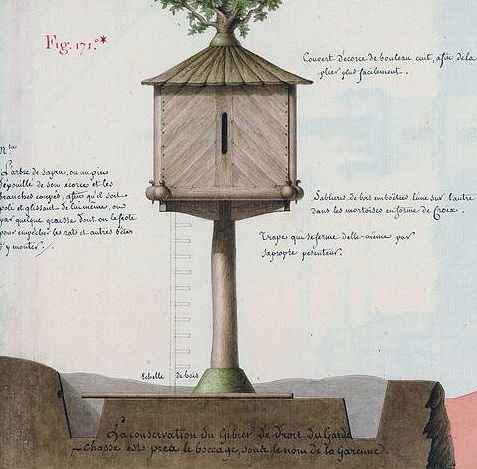 Fig. 171.^e*
Couvert d'écorce de bouleau cuit, afin de la
plier plus facilement.
N.ta
L'arbre de sapin, ou un pin
dépouillé de son écorce et les
branches coupés, afin qu'il soit
poli et glissant de lui même, ou
par quelque graisse dont on le frote
pour empêcher les rats et autres bêtes
d'y monter.
Sablieres de bois emboëtées l'une sur l'autre
dans les mortoises en forme de Croix.
Trape qui se ferme d'elle-même par
sa propre pesenteur.
Echelle de bois
La conservation du Gibier de Droit du Garde
chasse est prea le boccage, soute le nom de la Garenne.